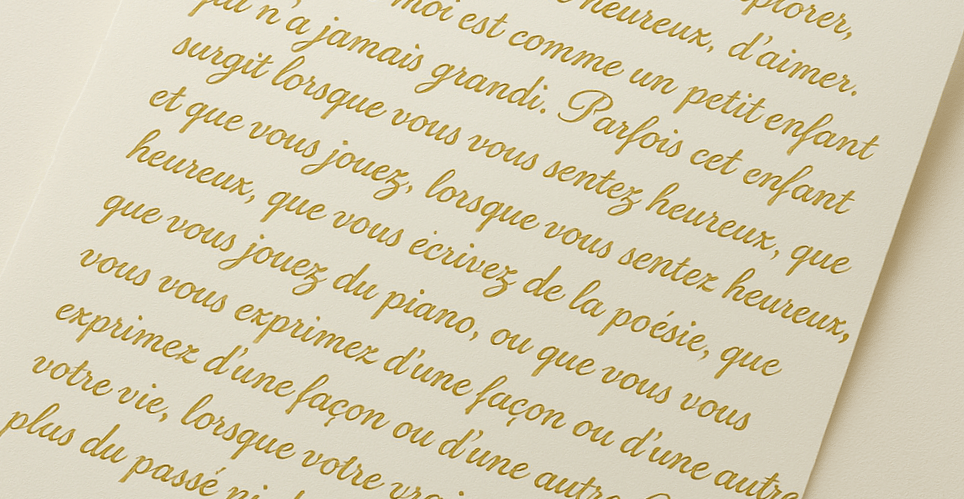 heureux, d'aimer.
moi est comme un petit enfant
n'a jamais grandi. Parfois cet enfant
surgit lorsque vous vous sentez heureux, que
et que vous jouez, lorsque vous sentez heureux,
heureux, que vous écrivez de la poésie, que
que vous jouez du piano, ou que vous vous
vous vous exprimez d'une façon ou d'une autre
exprimez d'une façon ou d'une autre
votre vie, lorsque votre
plus du passé